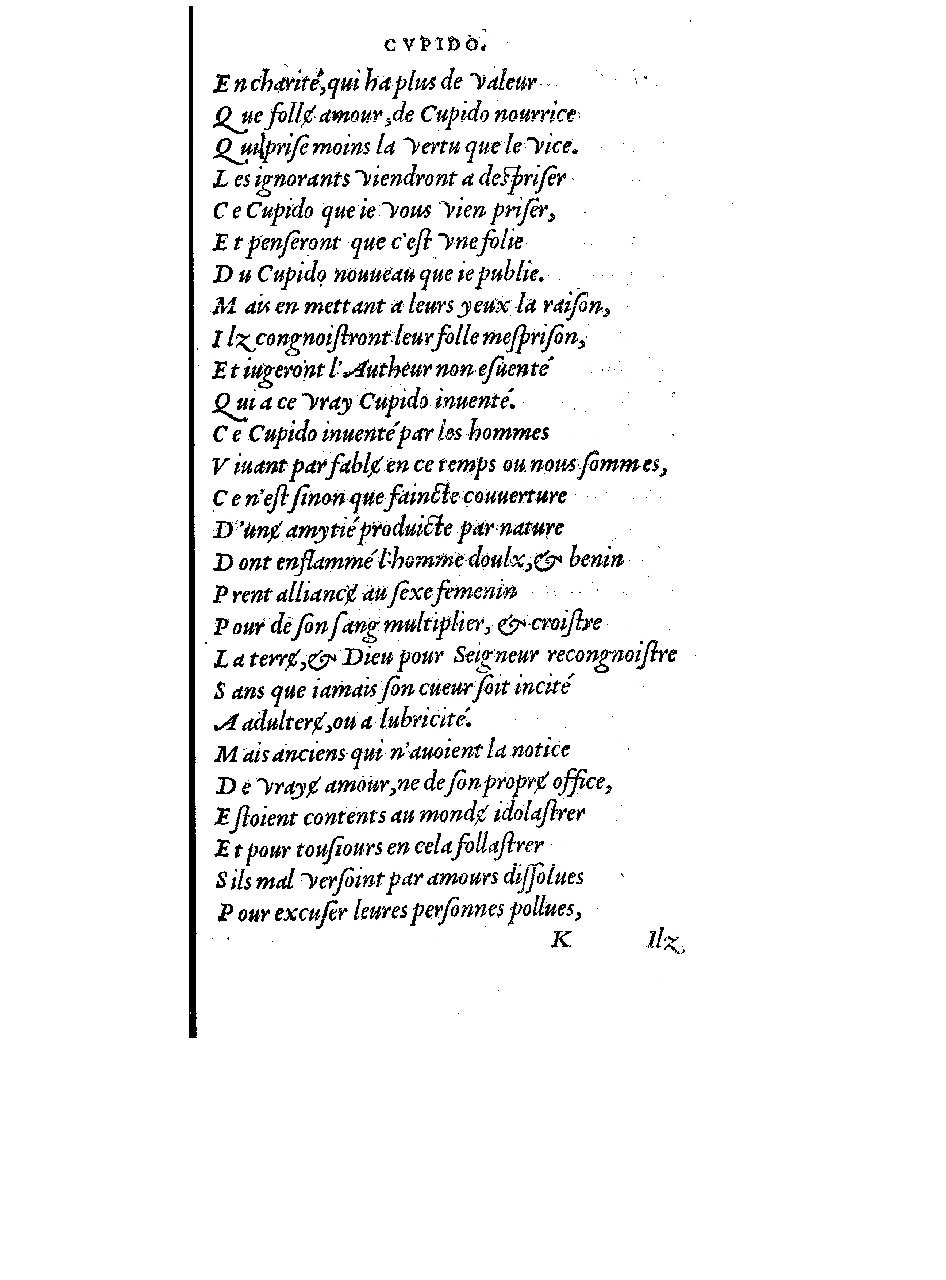 CVPIDO.
En charité, qui ha plus de valeur
Que folle̷ amour, de Cupido nourrice
Qui priſe moins la vertu que le vice.
Les ignorants viendront a deſpriſer
Ce Cupido que ie vous vien priſer,
Et penſeront que c'eſt vne folie
Du Cupido nouueau que ie publie.
Mais en mettant a leurs yeux la raiſon,
Ilz congnoiſtront leur folle meſpriſon,
Et iugeront l'Autheur non eſuenté
Qui a ce vray Cupido inuenté.
Ce Cupido inuenté par les hommes
Viuant par fable̷ en ce temps ou nous ſommes,
Ce n'eſt ſinon que faincte couuerture
D'une̷ amytié produicte par nature
Dont enflammé l'homme doulx, & benin
Prent alliance̷ au ſexe femenin
Pour de ſon ſang multiplier, & croiſtre
La terre̷, & Dieu pour Seigneur recongnoiſtre
Sans que iamais ſon cueur ſoit incité
A adultere̷, ou a lubricité.
Mais anciens qui n'auoient la notice
De vraye̷ amour, ne de ſon propre̷ office,
Eſtoient contents au monde̷ idolaſtrer
Et pour touſiours en cela follaſtrer
S ils mal verſoint par amours diſſolues
Pour excuſer leures perſonnes pollues,
K Ilz